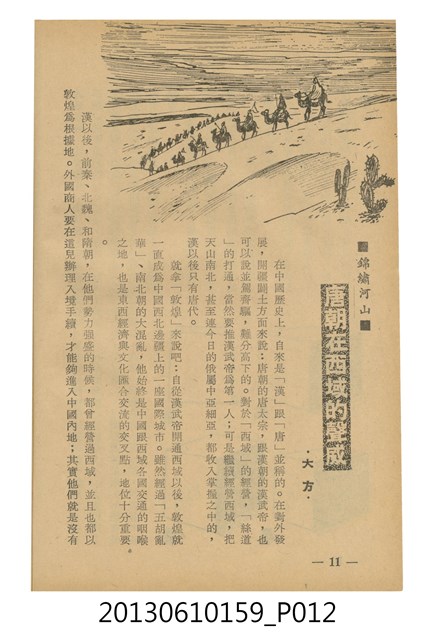 ■錦繡河山■
唐朝在西域的聲威
·大方·
在中國歷史上，自來是「漢」跟「唐」並稱的。在對外發
展，開疆闢土方面來說：唐朝的唐太宗，跟漢朝的漢武帝，也
可以說並駕齊驅，難分高下的。對於「西域」的經營，「絲道
」的打通，當然要推漢武帝爲第一人；可是繼續經營西域，把
天山南北，甚至連今日的俄屬中亞細亞，都收入掌握之中的，
漢以後只有唐代。
就拿「敦煌」來說吧；自從漢武帝開通西域以後，敦煌就
一直成爲中國西北邊疆上的一座國際城市。雖然經過「五胡亂
華」、南北朝的大混亂，他始終是中國跟西域各國交通的咽喉
之地，也是東西經濟與文化匯合交流的交叉點，地位十分重要
。
漢以後，前秦、北魏、和隋朝，在他們勢力強盛的時候，都曾經營過西域，並且也都以
敦煌爲根據地。外國商人要在這兒辦理入境手續，才能夠進入中國內地；其實他們就是沒有
— 11 —
20130610159_P012